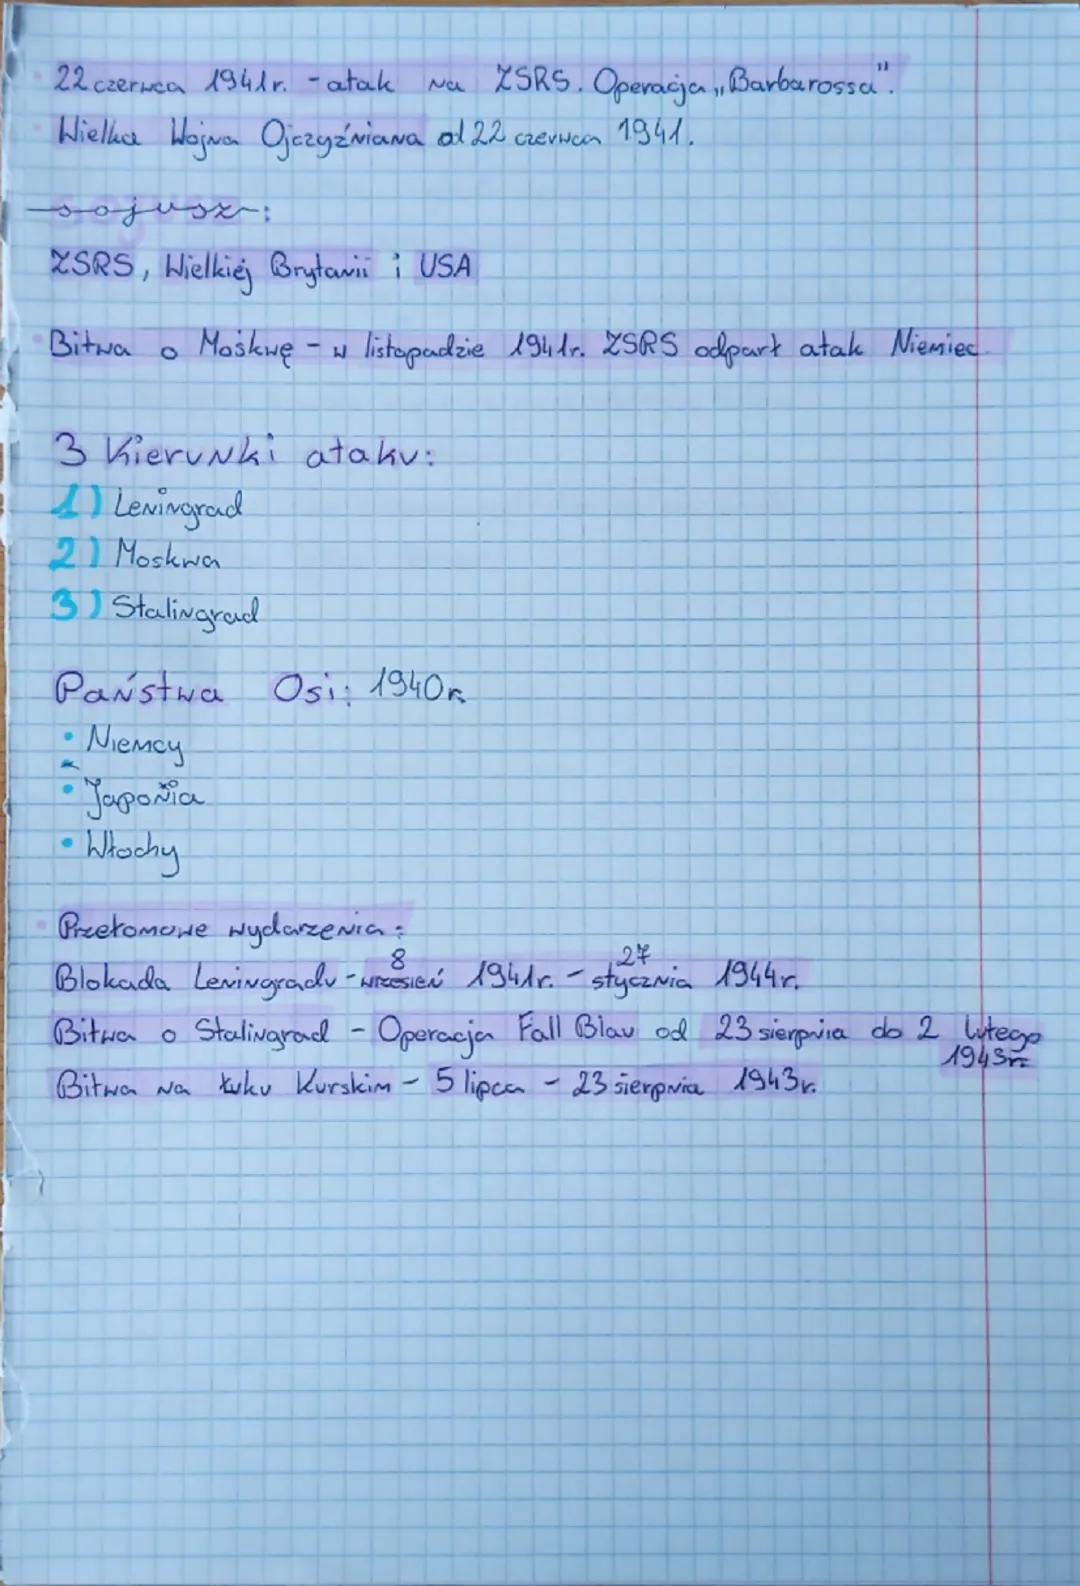 22 czerwca 1941r. - atak na ZSRS. Operacja „Barbarossa".
Wielka Wojna Ojczyźniana od 22 czerwca 1941.
sojusz:
ZSRS, Wielkiej Brytanii i USA
Bitwa o Moskwę - w listopadzie 1941r. ZSRS odparł atak Niemiec.
3 kierunki ataku:
1) Leningrad
2) Moskwa
3) Stalingrad
Państwa Osi: 1940r.
• Niemcy
• Japonia
• Włochy
Przełomowe wydarzenia:
Blokada Leningradu - 8 wrzesień 1941r. - 27 stycznia 1944r.
Bitwa o Stalingrad - Operacja Fall Blau od 23 sierpnia do 2 lutego
1943r.
Bitwa na łuku Kurskim - 5 lipca - 23 sierpnia 1943r.